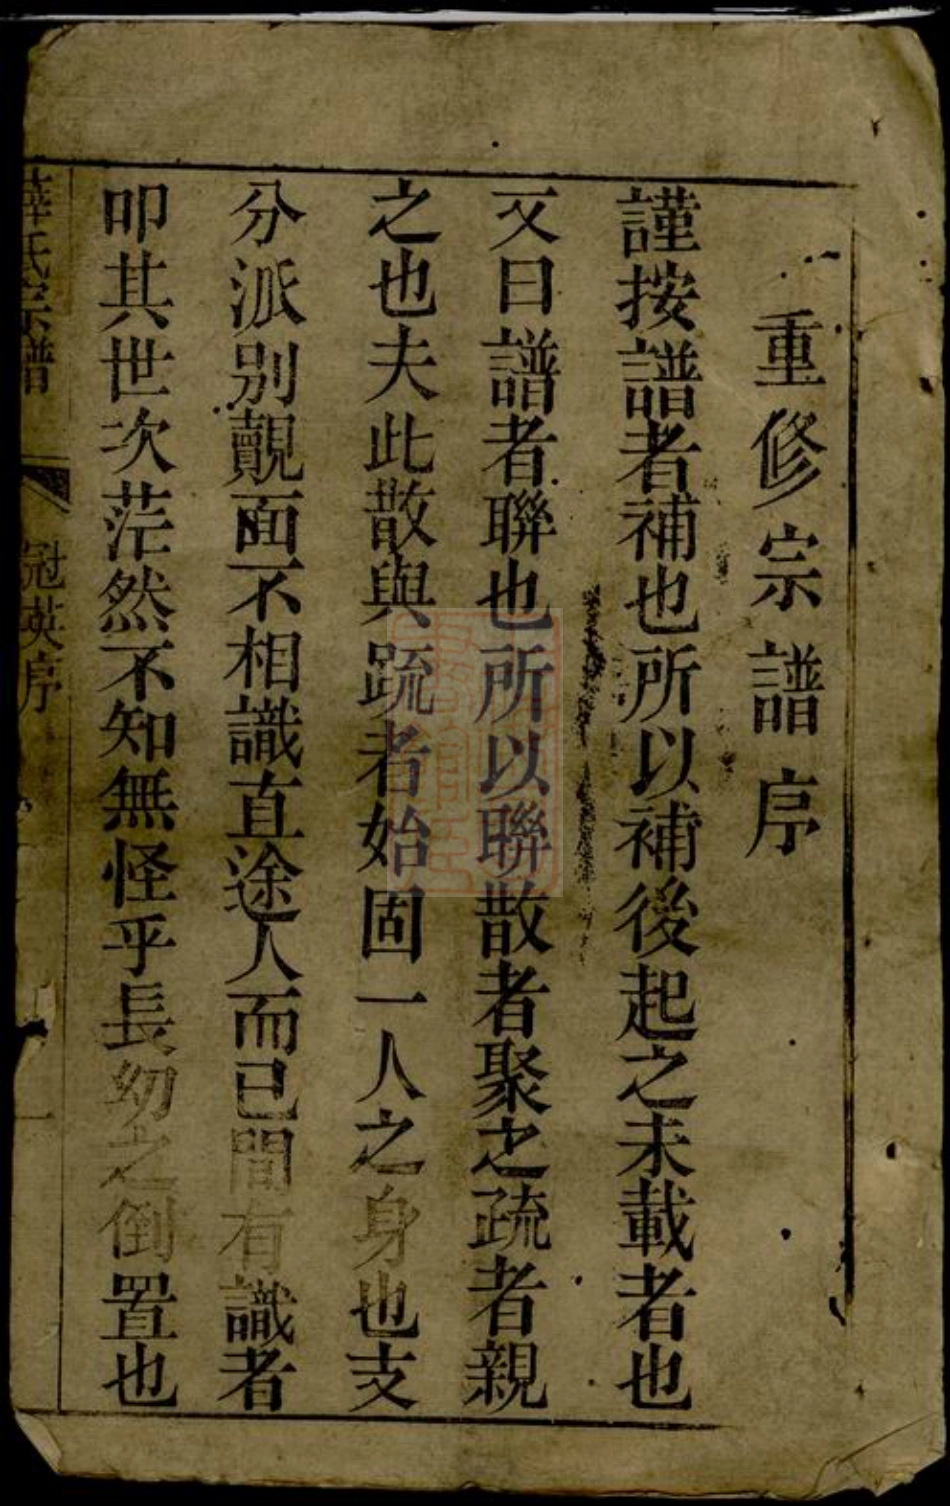 重修宗譜序
謹按譜者補也所以補後起之未載者也
又曰譜者聯也所以聯散者聚之疏者親
之也夫此散與疏者始固一人之身也支
分派別覿面不相識直途人而已間有識者
叩其世次茫然不知無怪乎長幼之倒置也
薛氏宗譜 冠英序 一